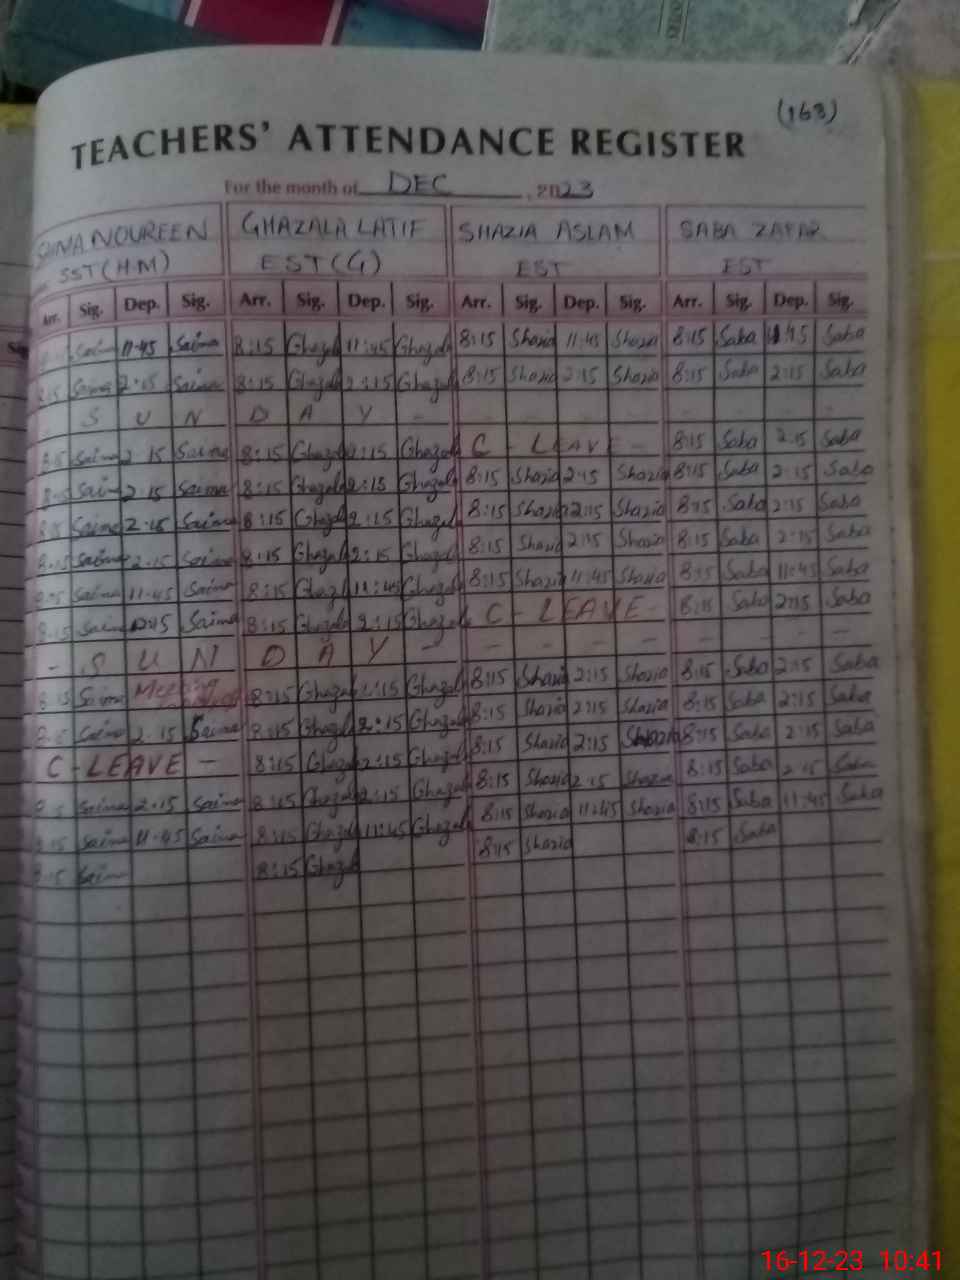 (163)
TEACHERS' ATTENDANCE REGISTER
For the month of DEC, 2023
SAIMA NOUREEN GHAZALA LATIF SHAZIA ASLAM SABA ZAFAR
SST (H.M) EST (G) EST EST
Arr. Sig. Dep. Sig. Arr. Sig. Dep. Sig. Arr. Sig. Dep. Sig. Arr. Sig. Dep. Sig.
Saima 11-45 Saima 8:15 Ghazala 11:45 Ghazala 8:15 Shazia 11:45 Shazia 8:15 Saba 11:45 Saba
8:15 Saima 2-15 Saima 8:15 Ghazala 2:15 Ghazala 8:15 Shazia 2:15 Shazia 8:15 Saba 2:15 Saba
S U N D A Y -
8-15 Saima 2-15 Saima 8:15 Ghazala 2:15 Ghazala C - LEAVE - 8:15 Saba 2:15 Saba
8-15 Saima 2-15 Saima 8:15 Ghazala 2:15 Ghazala 8:15 Shazia 2:15 Shazia 8:15 Saba 2:15 Saba
8-15 Saima 2-15 Saima 8:15 Ghazala 2:15 Ghazala 8:15 Shazia 2:15 Shazia 8:15 Saba 2:15 Saba
8-15 Saima 2-15 Saima 8:15 Ghazala 2:15 Ghazala 8:15 Shazia 2:15 Shazia 8:15 Saba 2:15 Saba
8-15 Saima 11-45 Saima 8:15 Ghazala 11:45 Ghazala 8:15 Shazia 11:45 Shazia 8:15 Saba 11:45 Saba
8-15 Saima Saima 8:15 Ghazala 2:15 Ghazala C - LEAVE - 8:15 Saba 2:15 Saba
- S U N D A Y - - - - - - - - -
8-15 Saima Meeting 8:15 Ghazala 2:15 Ghazala 8:15 Shazia 2:15 Shazia 8:15 Saba 2:15 Saba
8-15 Saima 2-15 Saima 8:15 Ghazala 2:15 Ghazala 8:15 Shazia 2:15 Shazia 8:15 Saba 2:15 Saba
C - LEAVE - 8:15 Ghazala 2:15 Ghazala 8:15 Shazia 2:15 Shazia 8:15 Saba 2:15 Saba
8-15 Saima 2-15 Saima 8:15 Ghazala 2:15 Ghazala 8:15 Shazia 2:15 Shazia 8:15 Saba 2:15 Saba
8-15 Saima 11-45 Saima 8:15 Ghazala 11:45 Ghazala 8:15 Shazia 11:45 Shazia 8:15 Saba 11:45 Saba
8-15 Saima 8:15 Ghazala 8:15 Shazia 8:15 Saba
16-12-23 10:41